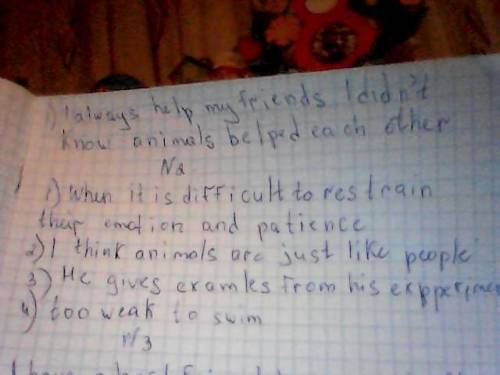 1) I always help my friends I didn't
know animals belped each other
N2
1) When it is difficult to restrain
their emotion and patience
2) I think animals are just like people
3) He gives examles from his expperimen
4) too weak to swim
n/3
I have a best friend